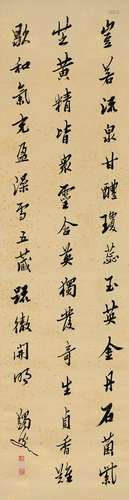 豈若流泉甘醴瓊蕊玉英金丹石菌紫
芝黃精皆衆靈含英獨發奇生貞香難
歇和氣充盈澡雪五藏疏徹開明